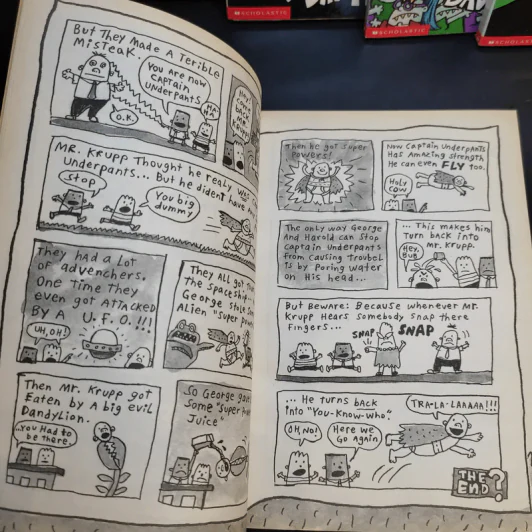 But They Made A Terible
Misteak.
You Are now
CAPTAIN
UNDERPANTS
O.K.
HA
HA
Hey,
come
back
Krupp
MR. KRUPP Thought he really was
Underpants... But he dident have
Stop
You big
dummy
They had a Lot
of advenchers.
One Time They
even got Attacked
By A U.F.O.!!!
UH, OH!
They All got
The Spaceship...
George
Alien "Super
Then Mr. Krupp got
Eaten by A big evil
DandyLion.
...You Had to
be there.
So George
Some "Super
Juice"
Then he got super
powers!
Now Captain Underpants
Has Amazing strength
He can even FLY too.
Holy
cow
The only way George
And Harold can stop
Captain Underpants
from causing troubel
is by Poring water
on His head...
... This makes him
Turn back into
Mr. Krupp.
Hey,
Bub
But Beware: Because whenever Mr.
Krupp Hears somebody snap there
fingers...
SNAP
SNAP
... He turns back
into "You-Know-Who."
OH, NO!
Here we
Go Again
TRA-LA-LAAAAA!!!
THE
END?
SCHOLASTIC
SCHOLASTIC
SCHOLASTIC